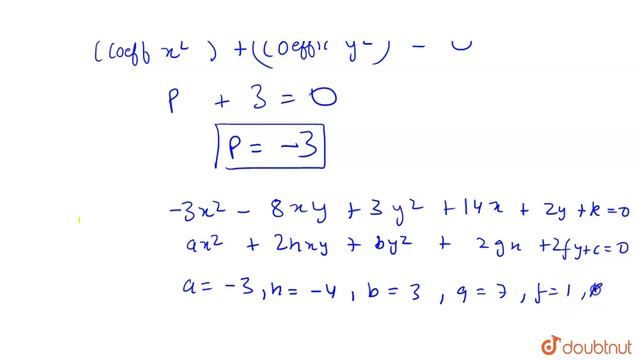 (Coeff x² ) + (Coeffic y²) = 0
P + 3 = 0
P = -3
-3x² - 8xy + 3y² + 14x + 2y + k = 0
ax² + 2hxy + by² + 2gx + 2fy + c = 0
a = -3, h = -4, b = 3, g = 7, f = 1,
doubtnut